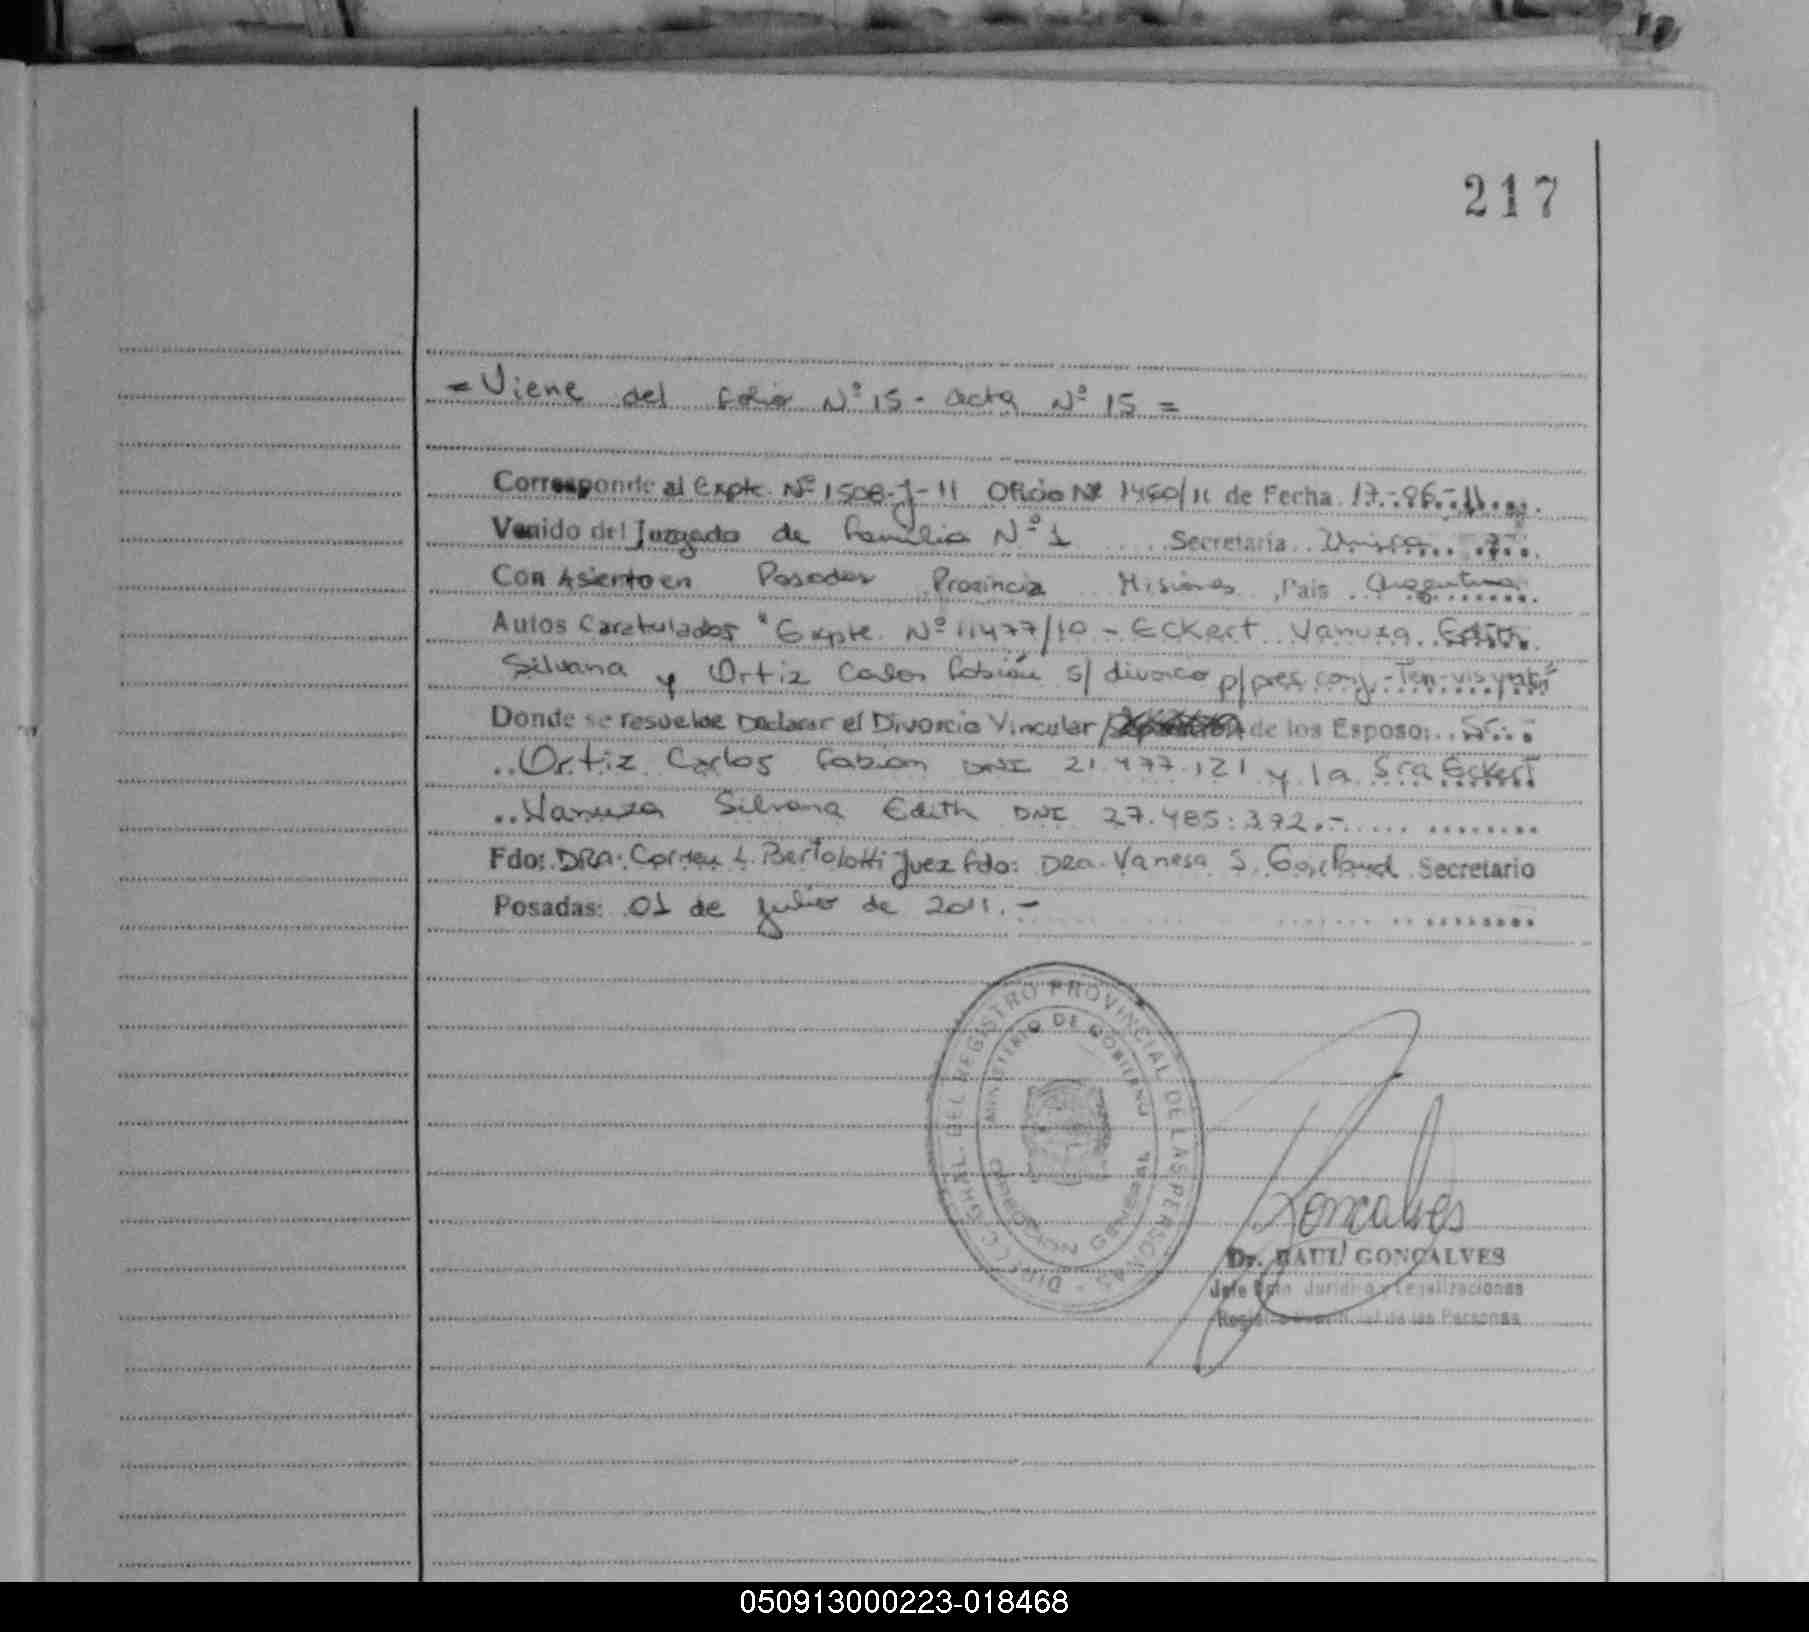 217
= Viene del folio Nº 15 - acta Nº 15 =
Corresponde al Expte. Nº 1508-J-11 Oficio Nº 1460/11 de Fecha 17-06-11
Venido del Juzgado de familia Nº 1 Secretaría Unica
Con Asiento en Posadas Provincia Misiones País Argentina
Autos Caratulados "Expte. Nº 11477/10 - Eckert Vanuza Edith
Silvana y Ortiz Carlos fabián s/ divorcio p/pres conj - Ten-vis y
Donde se resuelve Declarar el Divorcio Vincular / de los Esposos
Ortiz Carlos fabian DNI 21.477.121 y la Sra Eckert
Vanuza Silvana Edith DNI 27.485.392.-
Fdo: DRA. Carmen L. Bertolotti Juez fdo: Dra. Vanesa S. Secretario
Posadas: 01 de julio de 2011.-
DIRECC. GRAL. DEL REGISTRO PROVINCIAL DE LAS PERSONAS
MINISTERIO DE GOBIERNO
Goncalves
Dr. RAUL GONCALVES
Jefe Dpto. Jurídico y Legalizaciones
Registro Provincial de las Personas
050913000223-018468